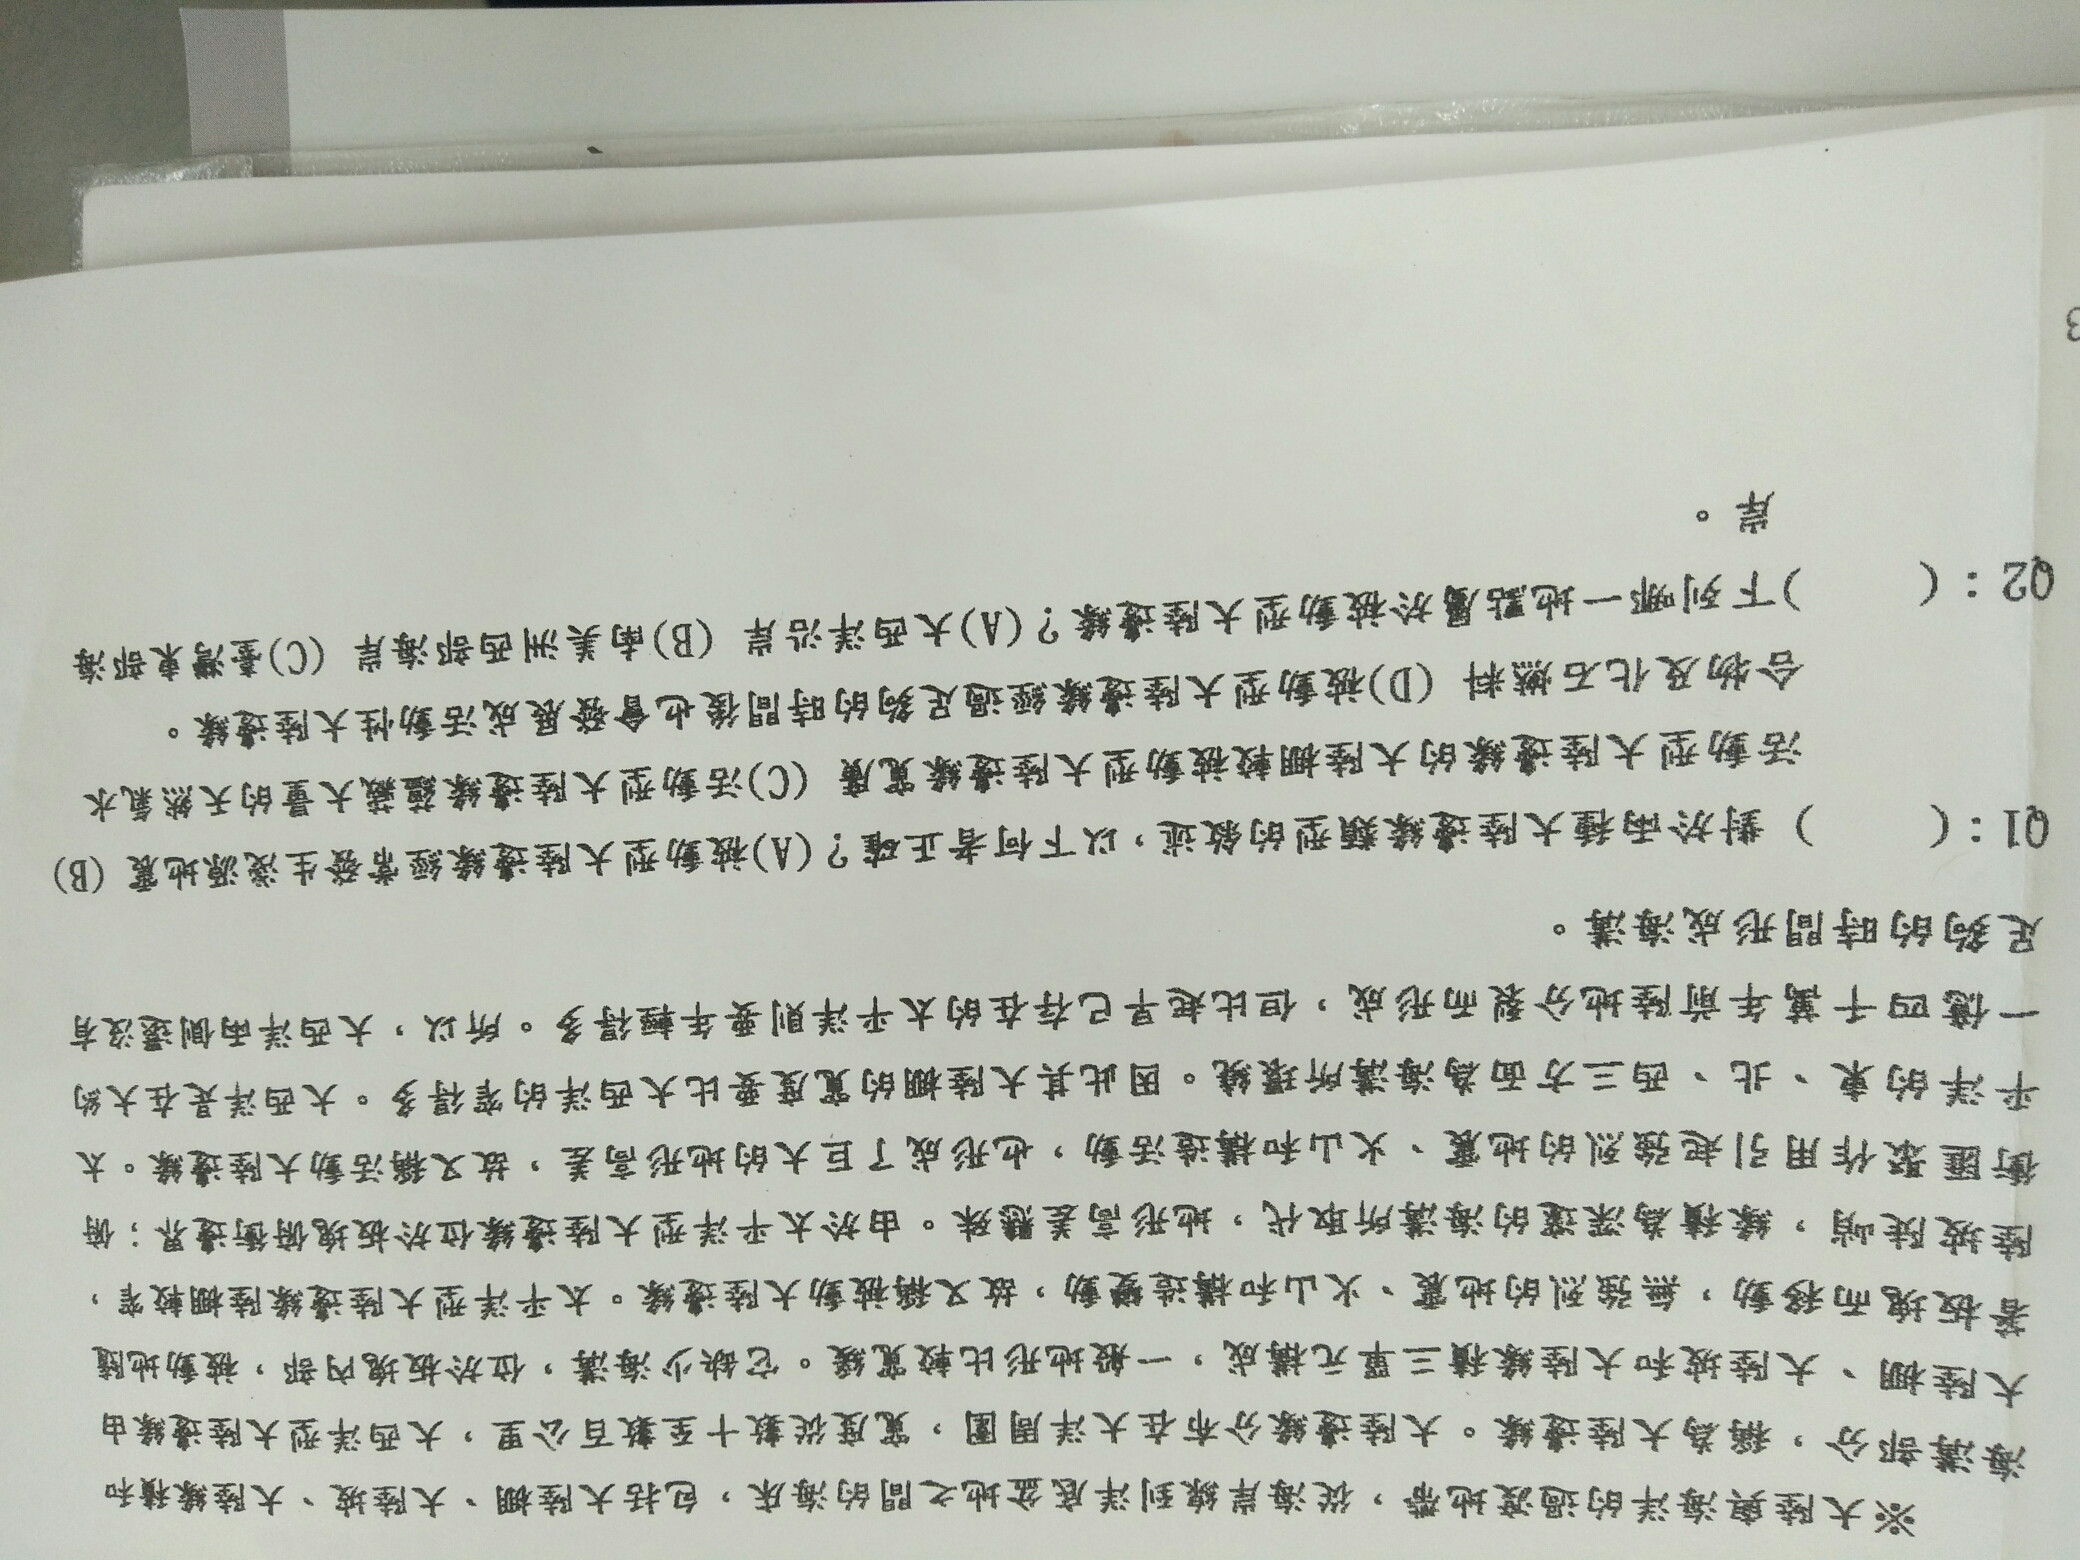 ※大陸與海洋的過渡地帶，從海岸線到洋底盆地之間的海床，包括大陸棚、大陸坡、大陸緣積和
海溝部分，稱為大陸邊緣。大陸邊緣分布在大洋周圍，寬度從數十至數百公里，大西洋型大陸邊緣由
大陸棚、大陸坡和大陸緣積三單元構成，一般地形比較寬緩。它缺少海溝，位於板塊內部，被動地隨
著板塊而移動，無強烈的地震、火山和構造變動，故又稱被動大陸邊緣。太平洋型大陸邊緣陸棚較窄，
陸坡陡峭，緣積為深邃的海溝所取代，地形高差懸殊。由於太平洋型大陸邊緣位於板塊俯衝邊界；俯
衝匯聚作用引起強烈的地震、火山和構造活動，也形成了巨大的地形高差，故又稱活動大陸邊緣。太
平洋的東、北、西三方面為海溝所環繞。因此其大陸棚的寬度要比大西洋的窄得多。大西洋是在大約
一億四千萬年前陸地分裂而形成，但比起早已存在的太平洋則要年輕得多。所以，大西洋兩側還沒有
足夠的時間形成海溝。
Q1：(　　) 對於兩種大陸邊緣類型的敘述，以下何者正確？(A)被動型大陸邊緣經常發生淺源地震 (B)
活動型大陸邊緣的大陸棚較被動型大陸邊緣寬廣 (C)活動型大陸邊緣蘊藏大量的天然氣水
合物及化石燃料 (D)被動型大陸邊緣經過足夠的時間後也會發展成活動性大陸邊緣。
Q2：(　　)下列哪一地點屬於被動型大陸邊緣？(A)大西洋沿岸 (B)南美洲西部海岸 (C)臺灣東部海
岸。
3